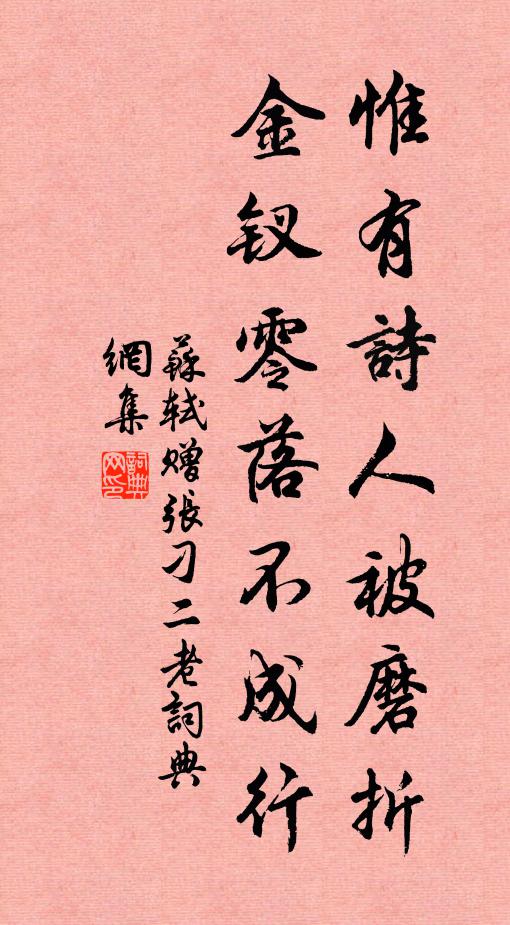 惟有詩人被磨折
金釵零落不成行
蘇軾贈張刁二老詞典
網集
詞典網印